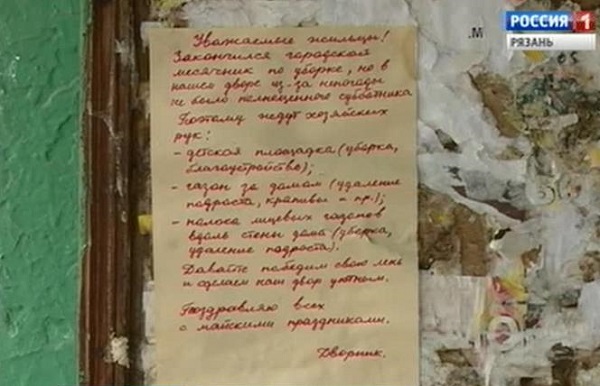 РОССИЯ 1
РЯЗАНЬ
.М
Уважаемые жильцы!
Закончился городской
месячник по уборке, но в
нашем дворе из-за непогоды
не было полноценного субботника
Поэтому ждут хозяйских
рук:
- детская площадка (уборка,
благоустройство);
- газон за домом (удаление
подроста, крапивы и пр.);
- полоса лицевых газонов
вдоль стены дома (уборка,
удаление подроста).
Давайте победим свою лень
и сделаем наш двор уютным.
Поздравляю всех
с майскими праздниками.
Дворник.